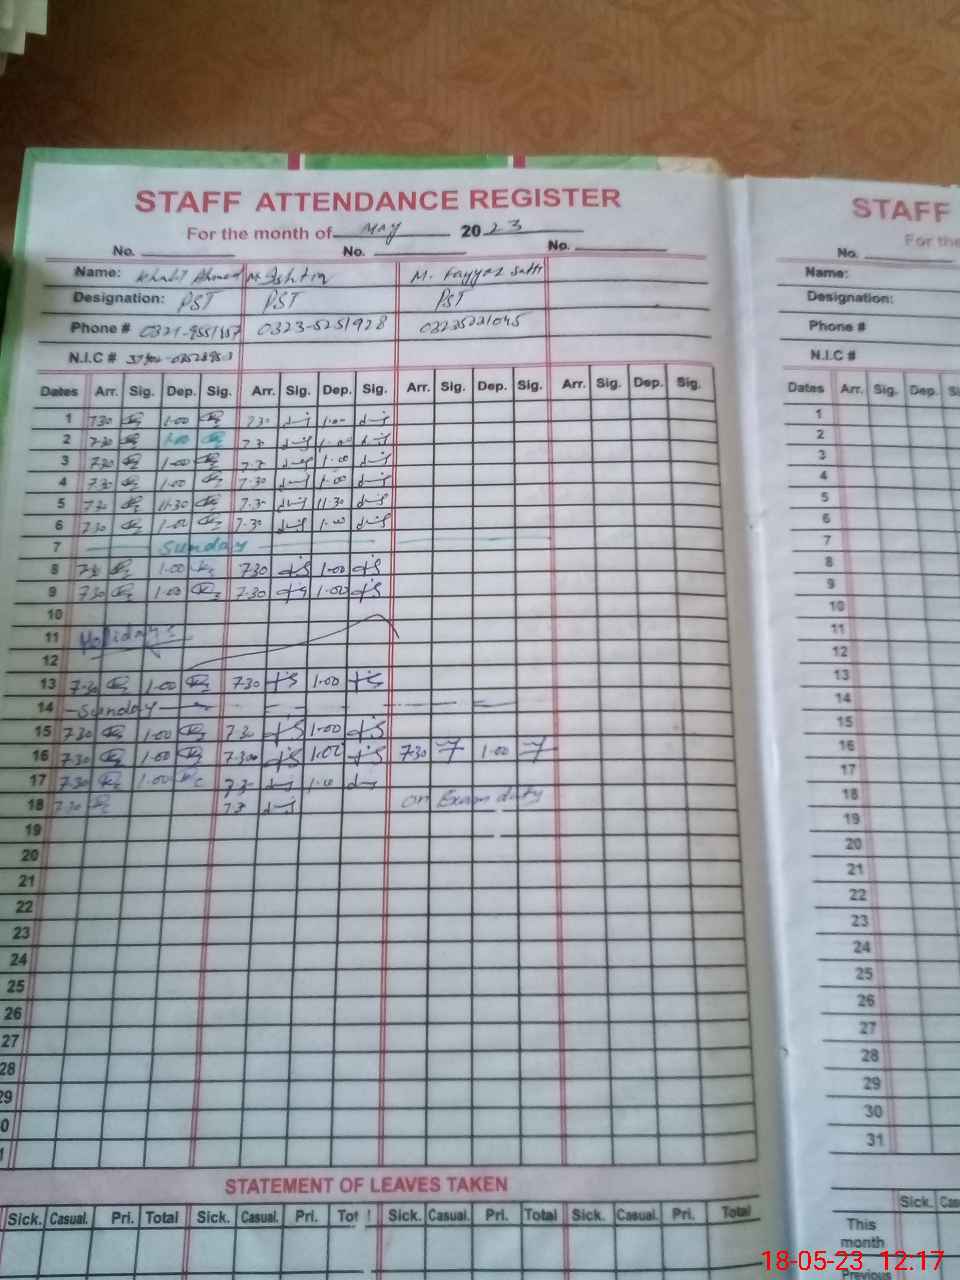 STAFF ATTENDANCE REGISTER
For the month of May 2023
No. No. No.
Name: Khalid Ahmed M. Ishtiq M. Fayyaz Satti
Designation: PST PST PST
Phone # 0323-5251928 03235221045
N.I.C #
Dates Arr. Sig. Dep. Sig. Arr. Sig. Dep. Sig. Arr. Sig. Dep. Sig. Arr. Sig. Dep. Sig.
1 7.30 1.00 7.30 1.00
2 7.30 1.00 7.30 1.00
3 7.30 1.00 7.30 1.00
4 7.30 1.00 7.30 1.00
5 7.30 11.30 7.30 11.30
6 7.30 1.00 7.30 1.00
7 Sunday
8 7.30 1.00 7.30 1.00
9 7.30 1.00 7.30 1.00
10
11 Holidays
12
13 7.30 1.00 7.30 1.00
14 Sunday
15 7.30 1.00 7.30 1.00
16 7.30 1.00 7.30 1.00 7.30 1.00
17 7.30 1.00 7.30 1.00
18 7.30 7.30 on Exam duty
19
20
21
22
23
24
25
26
27
28
29
0
1
STATEMENT OF LEAVES TAKEN
Sick. Casual. Pri. Total Sick. Casual. Pri. Sick. Casual. Pri. Total Sick. Casual. Pri. Total
STAFF
For the
No.
Name:
Designation:
Phone #
N.I.C #
Dates Arr. Sig. Dep.
1
2
3
4
5
6
7
8
9
10
11
12
13
14
15
16
17
18
19
20
21
22
23
24
25
26
27
28
29
30
31
Sick.
This
month
Previous
18-05-23 12.17